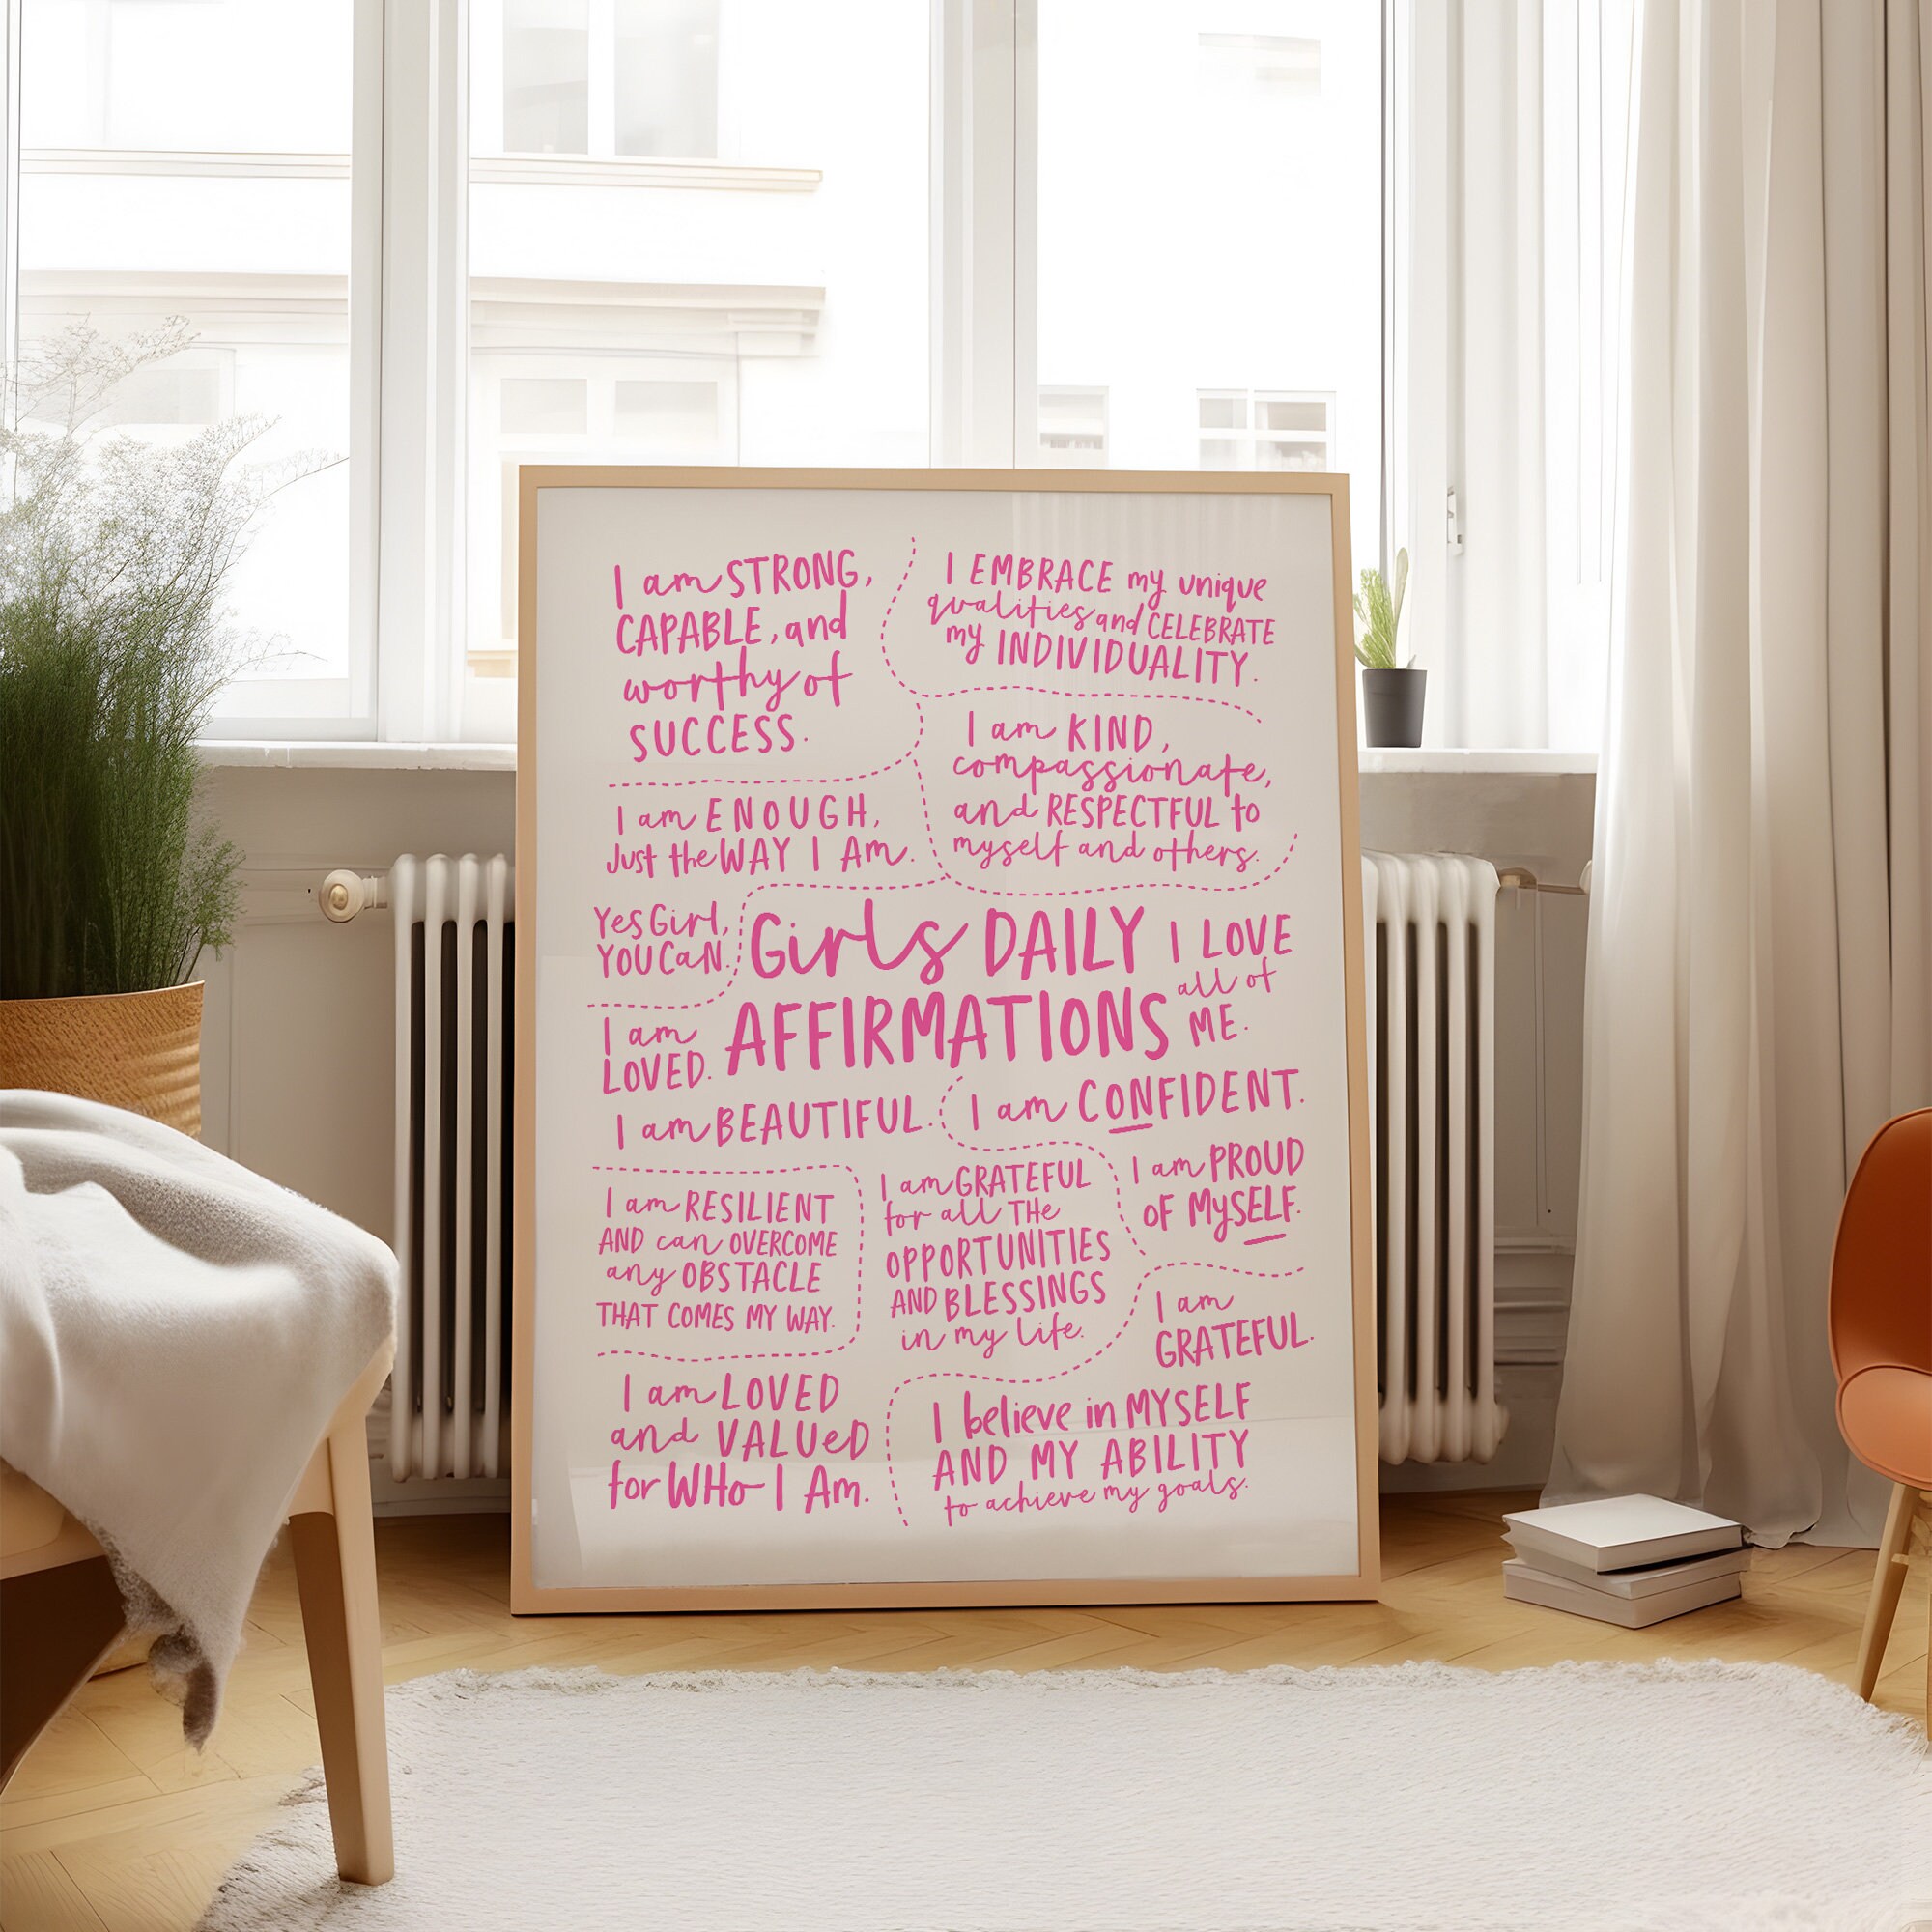 I am STRONG,
CAPABLE, and
worthy of
SUCCESS.
I EMBRACE my unique
qualities and CELEBRATE
my INDIVIDUALITY.
I am KIND,
compassionate,
and RESPECTFUL to
myself and others.
I am ENOUGH,
Just the WAY I Am.
Yes Girl,
YOU CaN.
Girls DAILY
AFFIRMATIONS
I LOVE
all of
ME.
I am
LOVED.
I am BEAUTIFUL.
I am CONFIDENT.
I am RESILIENT
AND can OVERCOME
any OBSTACLE
THAT COMES MY WAY.
I am GRATEFUL
for all THe
OPPORTUNITIES
AND BLESSINGS
in my life.
I am PROUD
OF MySELF.
I am
GRATEFUL.
I am LOVED
and VALUeD
for WHo I Am.
I believe in MYSELF
AND MY ABILITY
to achieve my goals.